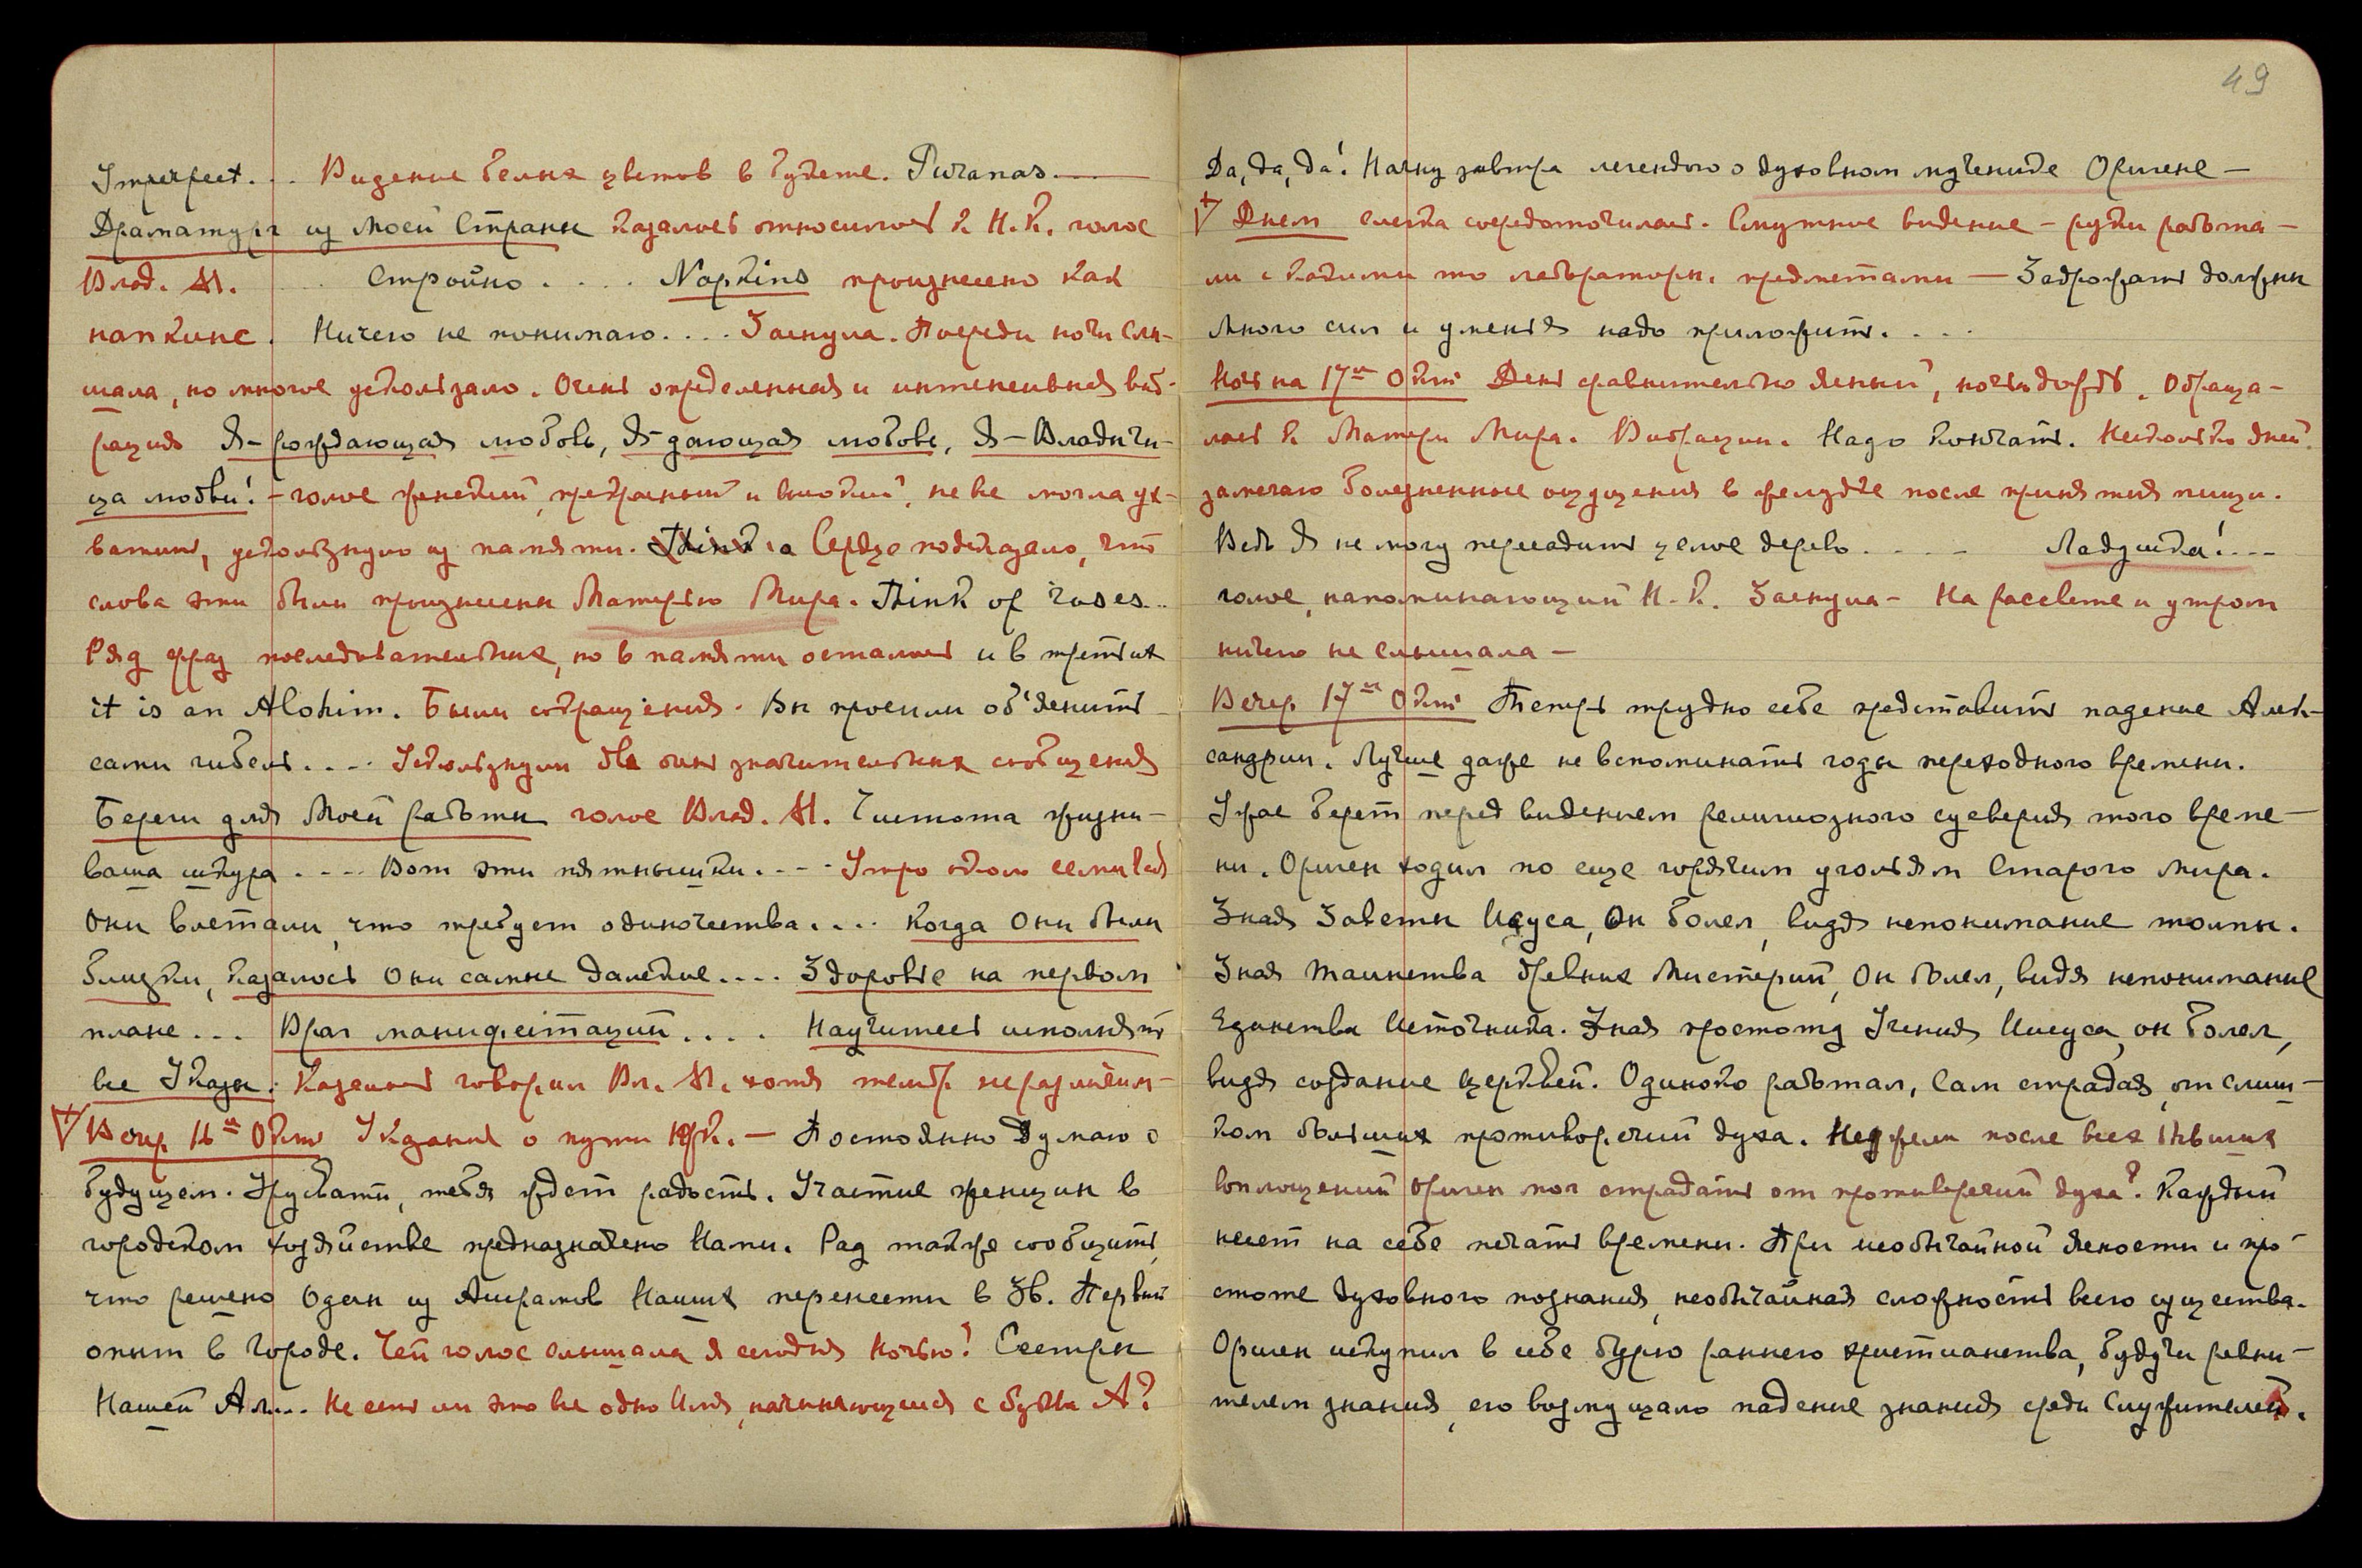 Imperfect... Видение белых цветов в букете. Puranas.—
Драматург из Моей Страны казалось относилось к Н.К. голос
Влад. М. ... Стройно.... Napkins произнесено как
напкинс. Ничего не понимаю.... Заснула. Посреди ночи слы-
шала, но многое ускользало. Очень определенная и интенсивная виб-
рация Я-рождающая любовь, Я-дающая любовь, Я-Владычи-
ца любви! - голос женский, прекрасный и высокий, не все могла ух-
ватить, ускользнуло из памяти. Сердце подсказало, что
слова эти были произнесены Матерью Мира. Think of roses..
Ряд фраз последовательных, но в памяти остались и в третьих
it is an Alohim. Были сокращения. Вы просили об'яснить
сами гибель.... Ускользнули два очень значительных сообщения
Береги для Моей работы голос Влад. М. Чистота жизни-
ваша шкура.... Вот эти пятнышки.... Утро около семи час
Они влетали, что требует одиночества.... Когда Они были
близки, казалось Они самые далекие.... Здоровье на первом
плане... Враг манифестаций.... Научитесь исполнять
все Указы. Казалось говорил Вл. М. хотя тембр неразличим-
Вечер 16го Окт Указания о пути Н.К. — Постоянно Думаю о
будущем. Урусвати, тебя ждет радость. Участие женщин в
городском хозяйстве предназначено Нами. Рад также сообщить,
что решено Один из Ашрамов Наших перенести в Зв. Первый
опыт в Городе. Чей голос слышала я сегодня ночью? Сестры
Нашей Ал... Не есть ли это все одно Имя, начинающееся с буквы А?
49
Да, да, да! Начну завтра легендою о духовном мученике Оригене —
Днем слегка сосредоточилась. Смутное видение - руки работа-
ли с какими то лаборатори. предметами — Задрожать должны
Много сил и умения надо приложить....
Ночь на 17ое Окт День сравнительно ясный, ночью дождь. Обраща-
лась к Матери Мира. Вибрации. Надо кончать. Несколько дней
замечаю болезненные ощущения в желудке после принятия пищи.
Ведь я не могу пересадить целое дерево..... Ладушка!...
голос, напоминающий Н.К. Заснула - На рассвете и утром
ничего не слышала —
Вечер 17ое Окт Теперь трудно себе представить падение Алек-
сандрии. Лучше даже не вспоминать годы переходного времени.
Ужас берет перед видением религиозного суеверия того време-
ни. Ориген ходил по еще горячим угольям Старого мира.
Зная Заветы Исуса, Он болел, видя непонимание толпы.
Зная Таинства древних Мистерий, Он болел, видя непонимание
Единства Источника. Зная простоту Учения Иисуса, он болел,
видя создание церквей. Одиноко работал, Сам страдая, от слиш-
ком больших противоречий духа. Неужели после всех высших
воплощений Ориген мог страдать от противоречий духа? Каждый
несет на себе печать времени. При необычайной ясности и про-
стоте духовного познания, необычайная сложность всего существа.
Ориген искупил в себе бурю раннего христианства, будучи ревни-
телем знания, его возмущало падение знания среди Служителей.